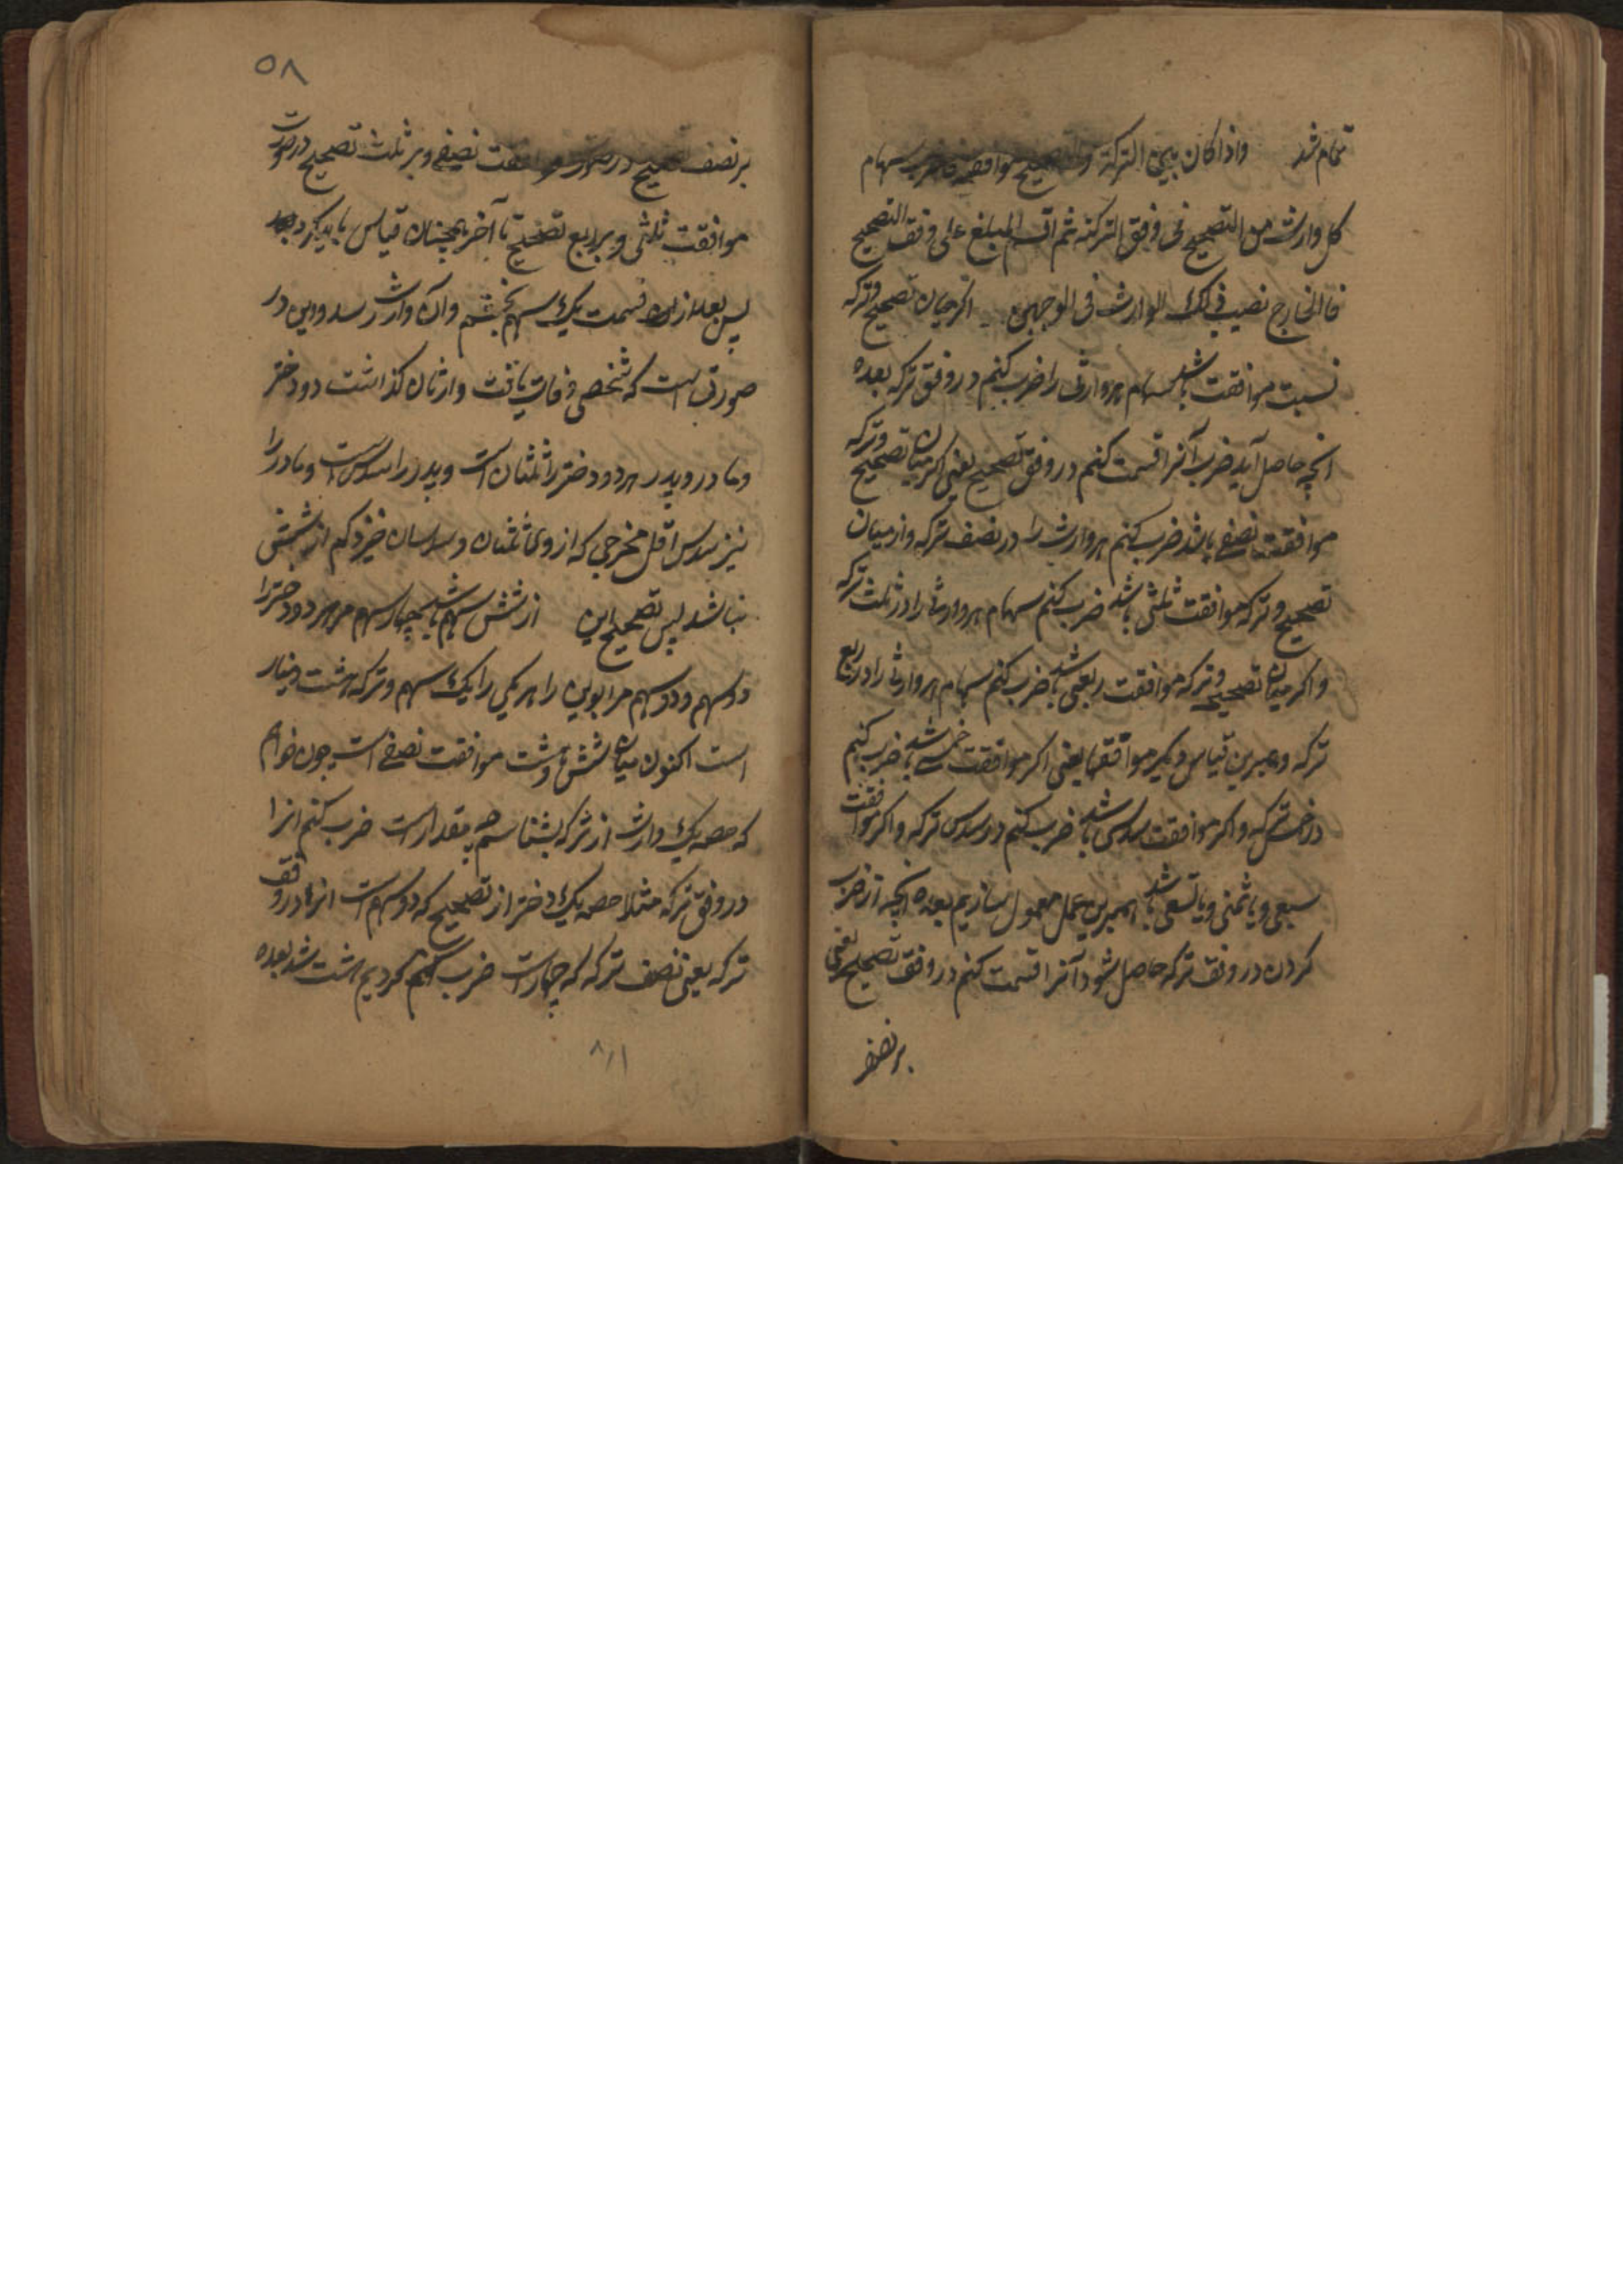 تمام شد واذا کان بین الترکة و التصحیح موافقة فاضرب سهام
کل وارث من التصحیح فی وفق الترکة ثم اقسم المبلغ علی وفق التصحیح
فالخارج نصیب ذلک الوارث فی الوجهین اکر میان تصحیح و ترکه
نسبت موافقت باشد سهام هر وارثی را ضرب کنم در وفق ترکه بعده
انچه حاصل آید ضرب آنرا قسمت کنم در وفق تصحیح یعنی اکر میان تصحیح و ترکه
موافقت نصفی باشد ضرب کنم هر وارث را در نصف ترکه و از میان
تصحیح و ترکه موافقت ثلثی باشد ضرب کنم سهام هر وارث را در ثلث ترکه
و اکر میان تصحیح و ترکه موافقت ربعی باشد ضرب کنم سهام هر وارث را در ربع
ترکه و همبرین قیاس دیکر موافقتها یعنی اکر موافقت خمسی باشد ضرب کنم
در خمس ترکه و اکر موافقت سدسی باشد ضرب کنم در سدس ترکه و اکر موافقت
سبعی و یا ثمنی و یا تسعی باشد همبرین عمل معمول سازیم بعده انچه از ضرب
کردن در وفق ترکه حاصل شود آنرا قسمت کنم در وفق تصحیح یعنی
بر نصف
۵۸
بر نصف تصحیح در صورت موافقت نصفی و بر ثلث تصحیح در صورت
موافقت ثلثی و بر ربع تصحیح تا آخر همچنان قیاس باید کرد
پس بعد ازان قسمت یک سهم بخشم و آن وارث رسد و این در
صورتی است که شخصی وفات یافت و ارثان کذاشت دو دختر
و مادر و پدر هر دو دختر را ثلثان است و پدر را سدس است و مادر را
نیز سدس اقل مخرجی که از وی ثلثان و سدسان خیزد کم از شش
نباشد پس تصحیح این از شش سهم باشد چهار سهم مر هر دو دختر را
دو سهم و دو سهم مر ابوین را هر یکی را یک سهم و ترکه هشت دینار
است اکنون میان شش و هشت موافقت نصفی است چون خواهم
که حصه یک وارث از ترکه بشناسم چه مقدار است ضرب کنم انرا
در وفق ترکه مثلا حصه یک دختر از تصحیح که دو سهم است انرا در وفق
ترکه یعنی نصف ترکه که چهار است ضرب کردیم هشت شد بعده